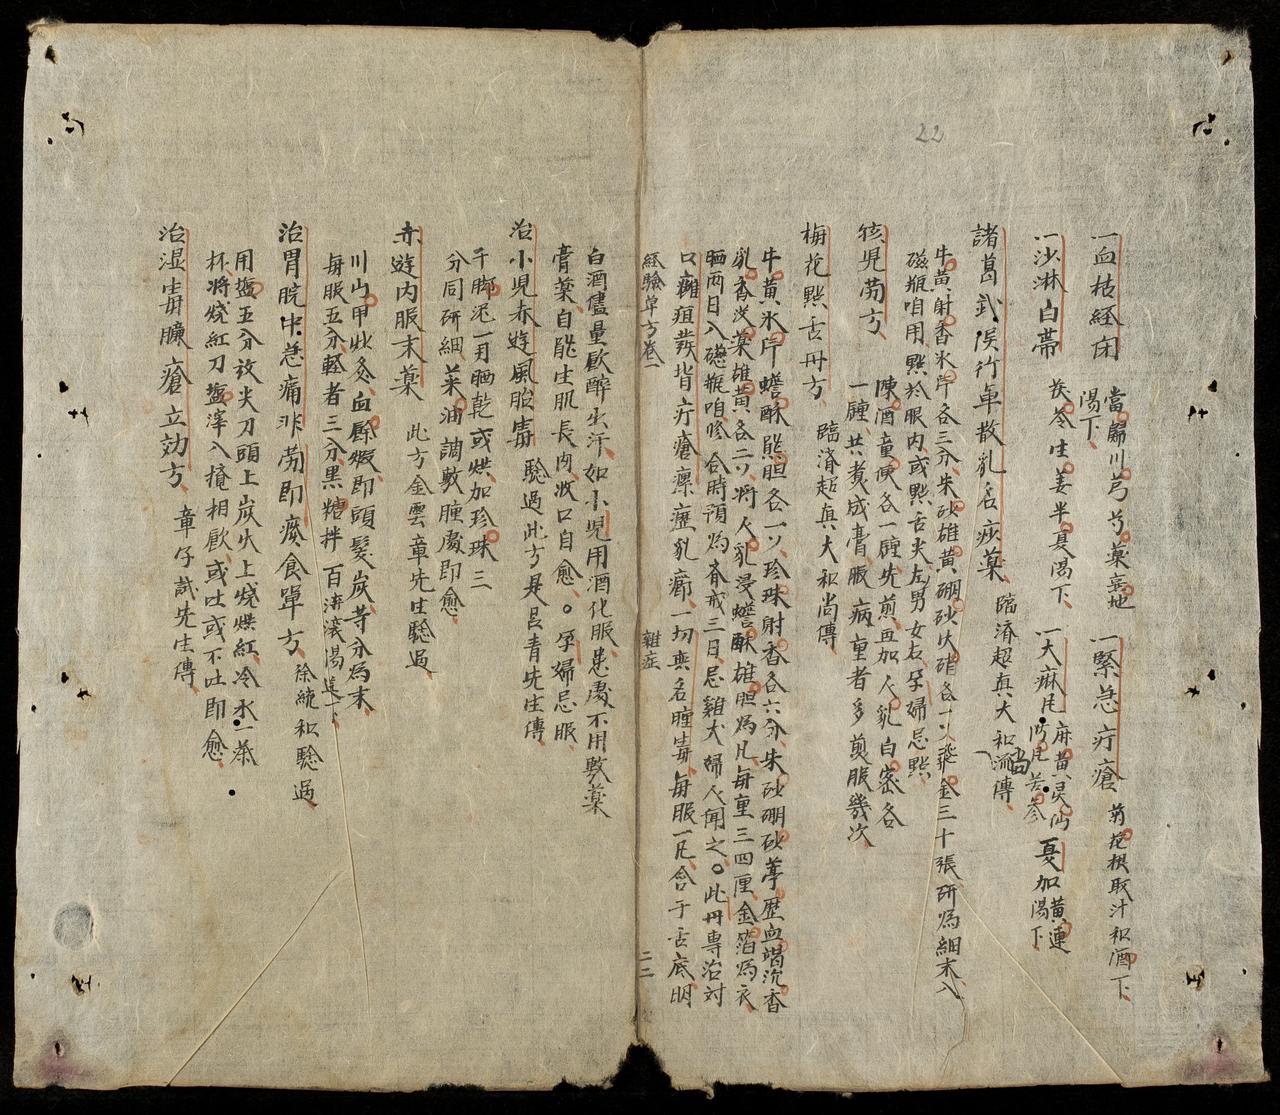 22
一血枯經閉 當歸川芎芍藥熟地
湯下
一緊急疔瘡 菊花根取汁和酒下
一沙淋白帶 茯苓生姜半夏湯下
一大麻瘋 麻黃灵仙
防風苦參 夏加黃連
湯下
諸葛武侯行軍散乩名痧藥 臨濟超真大和尚傳
牛黃射香氷片各三分朱砂雄黃硼砂火硝各一ソ飛金三十張研為細末入
磁瓶咱用點於眼內或點舌尖左男女右孕婦忌點
產兒勞方 陳酒童便各一鍾先煎再加人乳白蜜各
一鍾共煑成膏服病重者多煎服幾次
梅花點舌丹方 臨濟超真大和尚傳
牛黃氷片蟾酥熊胆各一ソ珍珠射香各六分朱砂硼砂葶歷血竭沉香
乳香沒藥雄黃各二ソ將人乳浸蟾酥雄胆為凡每重三四厘金箔為衣
晒兩日入磁瓶咱修合時須為斉戒三日忌雞犬婦人聞之此丹專治対
口癰疽發背疔瘡瘰癧乳癤一切無名腫毒每服一凡含于舌底明
經驗单方卷一 雜症 二二
白酒儘量飲醉出汗如小児用酒化服患處不用敷薬
膏薬自能生肌長肉收口自愈。孕婦忌服
治小児赤遊風胎毒 驗過此方是呂青先生傳
千脚泥一ソ晒乾或烘加珍珠三
分同研細菜油調敷腫處即愈
赤遊内服末薬 此方金雲章先生驗過
川山甲火炙血餘煆即頭髮炭等分為末
每服五分輕者三分黑糖拌百沸滚湯送下
治胃脘中急痛非勞即瘀食單方 徐統和驗過
用塩五分放尖刀頭上炭火上燒烘紅冷水一茶
杯將燒紅刀塩滓入攙相飲或吐或不吐即愈
治湿毒臁瘡立効方 章仔試先生傳